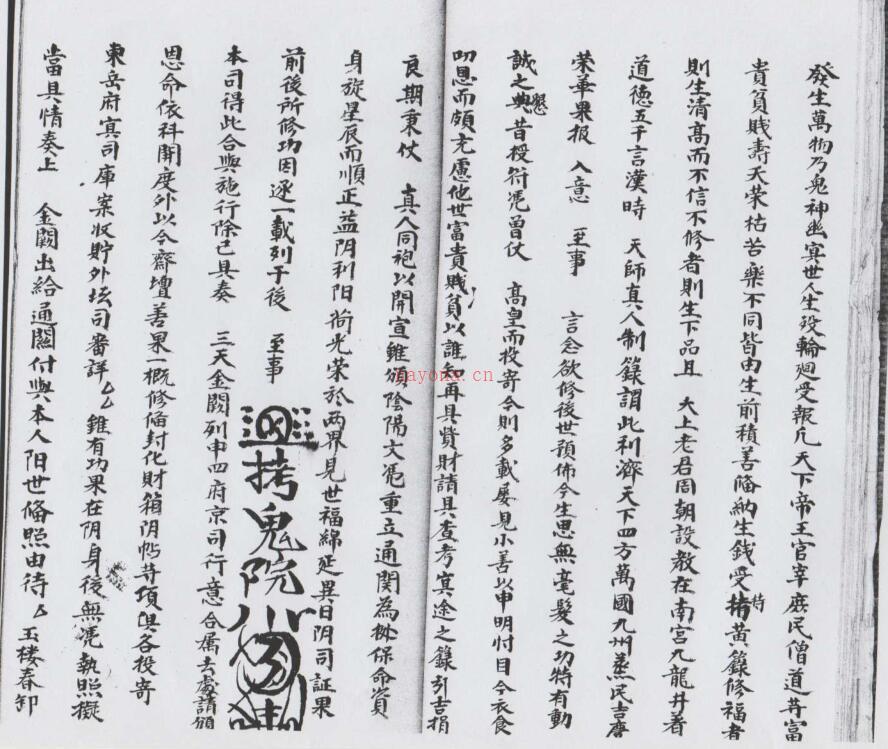 發生萬物乃鬼神幽冥世人生殁輪迴受報凢天下帝王官宰庶民僧道并富
貴貧賤壽夭荣枯苦樂不同皆由生前積善俻納生錢受持黄籙修福者
則生清髙而不信不修者則生下品且 大上老君周朝設教在南宮九龍井着
道德五千言漢時 天師真人制籙謂此利濟天下四方萬國九州蒸民吉慶
荣華果报 入意 至事 言念欲修後世預佈今生思無毫髮之功特有動
誠懇之典昔授符凴曾仗 髙皇而投寄今則多載屡見小善以申明忖目今衣食
叨恩而頗充慮他世富貴賎貧以誰知再具賫財請具查考冥途之籙引吉捐
良期秉仗 真人同袍以開宣錐頒陰陽文凴重立通関為 保命資
身旋星辰而順正益阴利阳尚光荣於两界見世福綿延異日阴司証果
前後所修功因逐一載列于後 至事
拷鬼院
本司得此合與施行除已具奏 三天金闕列申四府京司行意合属去處請頒
恩命依科開度外以今齋壇善果一概修俻封化財箱阴帋并項俱各投寄
東岳府冥司庫案收貯外坛司審詳厶厶錐有功果在阴身後無凴執照擬
當具情奏上 金闕出給通關付與本人阳世俻照由待厶 玉楼春卸
nayona.cn